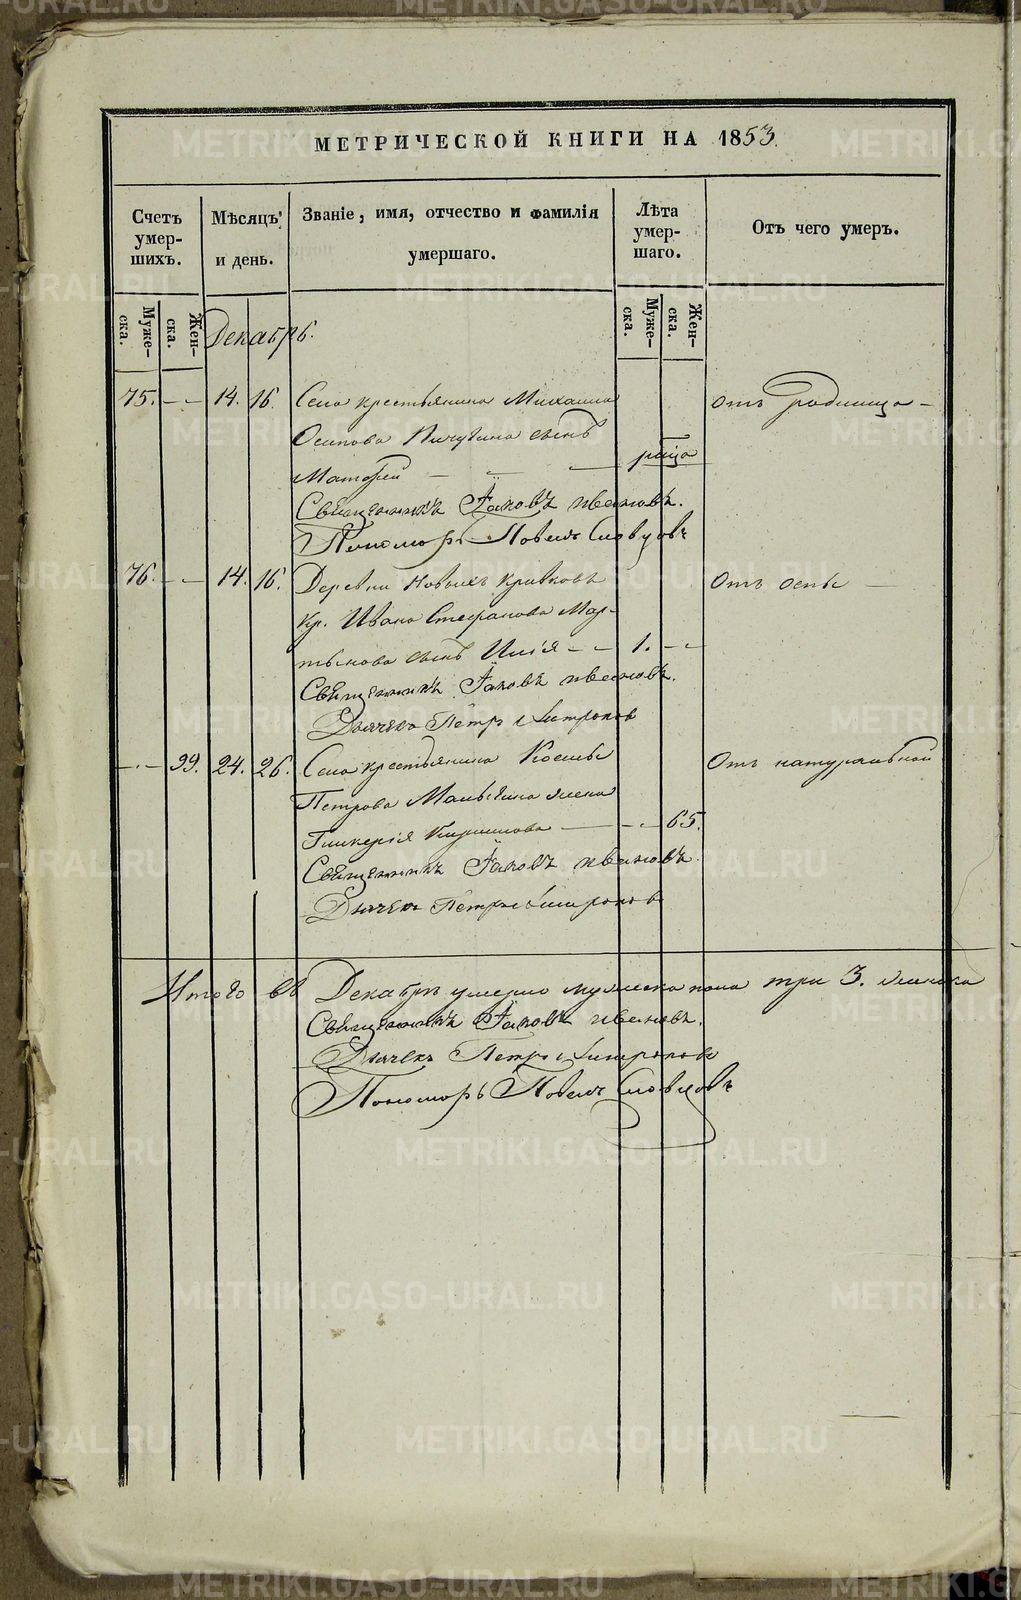 МЕТРИЧЕСКОЙ КНИГИ НА 1853.
Счетъ умер- шихъ.
Мѣсяцъ и день.
Званіе, имя, отчество и фамилія умершаго.
Лѣта умер- шаго.
Отъ чего умеръ.
Муже- ска.
Жен- ска.
Муже- ска.
Жен- ска.
Декабрь.
75. 14. 16. Села крестьянина Михаила Отъ родимца
Осипова Пичугина сынъ
Священникъ Іаковъ Ивановъ.
Пономарь Павелъ Словцовъ
76. 14. 16. Деревни Новыхъ Кривковъ Отъ оспы
Кр. Ивана Стефанова Мар-
тынова сынъ Илія 1.
Священникъ Іаковъ Ивановъ.
Дьячекъ Петръ
99. 24. 26. Села крестьянина Косьмы Отъ натуральной
Петрова Мальгина жена
Гликерія Кирилова 65.
Священникъ Іаковъ Ивановъ.
Дьячекъ Петръ
Итого въ Декабрѣ умерло мужеска пола три 3. женска
Священникъ Іаковъ Ивановъ.
Дьячекъ Петръ
Пономарь Павелъ Словцовъ
METRIKI.GASO-URAL.RU